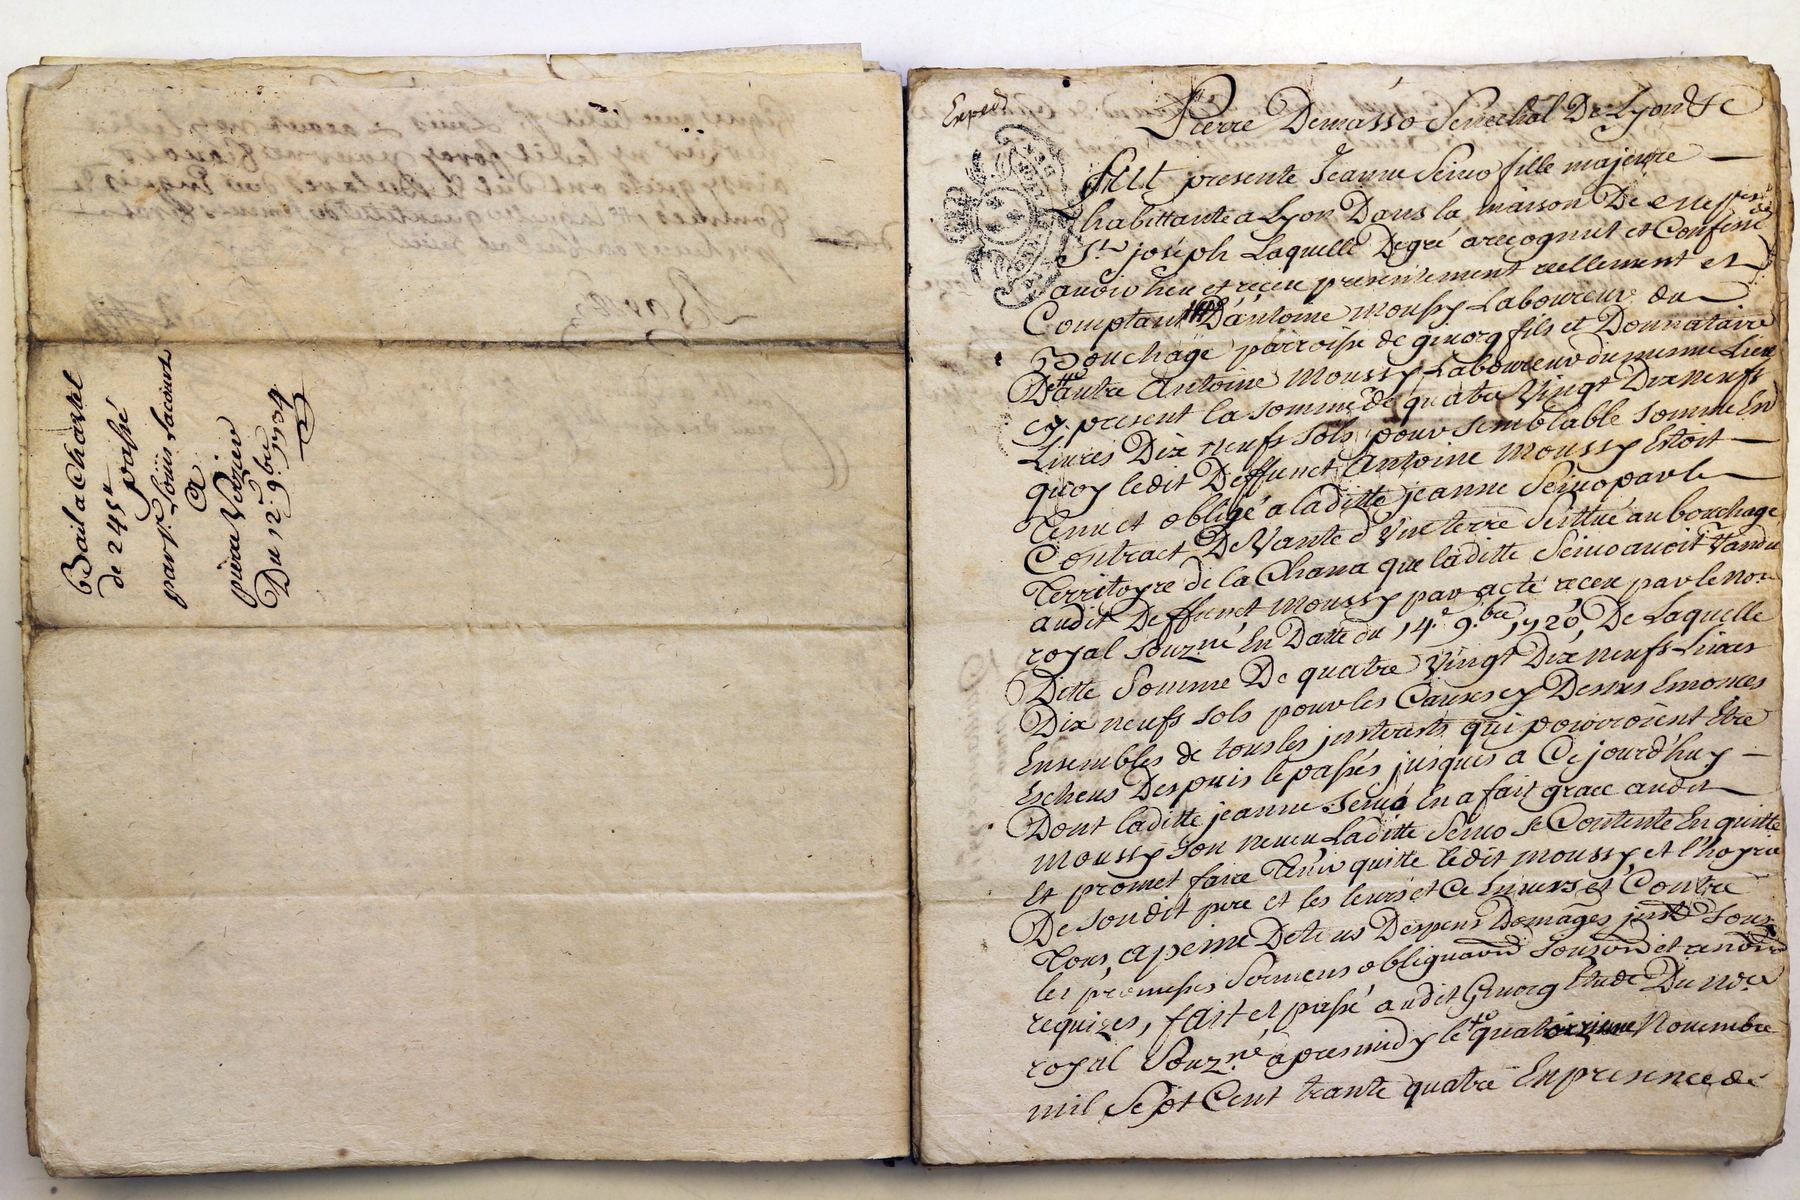 Bail a Chastel
de 245 lt
passé
par Sr Louis Lacourt
A
pierre Verrier
Du 12e 9bre 1734
Exped
Pierre Demasso Senechal De Lyon &c
fut presente Jeanne Servo fille majeure
habittante a Lyon Dans la maison De
St joseph Laquelle De gré a recognut et Confessé
avoir heu et receu presentement reellement et
Comptant D'antoine moussy Laboureur du
Bouchage parroisse de gruorg fils et Donnataire
D'autre Antoine Moussy Laboureur du mesme Lieu
cy present la somme de quatre Vingt Dix neufs
Livres Dix neufs sols pour semblable somme En
quoy ledit Deffunct Antoine moussy Estoit
Tenu et obligé a laditte jeanne Servo par le
Contract De Vante d'Vne terre scittué au bouchage
Territoyre de la Chana que laditte Servo avoit Vandu
audit Deffunct Moussy par acte receu par le no.re
royal souz.né En Datte du 14e 9.bre 1720 De Laquelle
Ditte Somme De quatre Vingt Dix neufs Livres
Dix neufs sols pour les Causes cy Dessus Enonces
Ensembles de tous les jnterests qui pourroient Etre
Escheus Despuis le passés jusques a Ce jourd'huy
Dont laditte jeanne Servo En a fait grace audit
Moussy son neveu Laditte Servo se Contente En quitte
Et promet faire Tenir quitte ledit moussy et l'hoyrie
De sondit pere et les leurs et Ce Envers et Contre
Tous, a peine De tous Despens Domages jnts Sous
les promesses Sermens obliguaōn Soumōn et renonōn
requizes, fait et passé audit Gruorg Etude Du no.re
royal Souz.né apres midy le quatorzieme Novembre
mil Sept Cent trante quatre En presence de